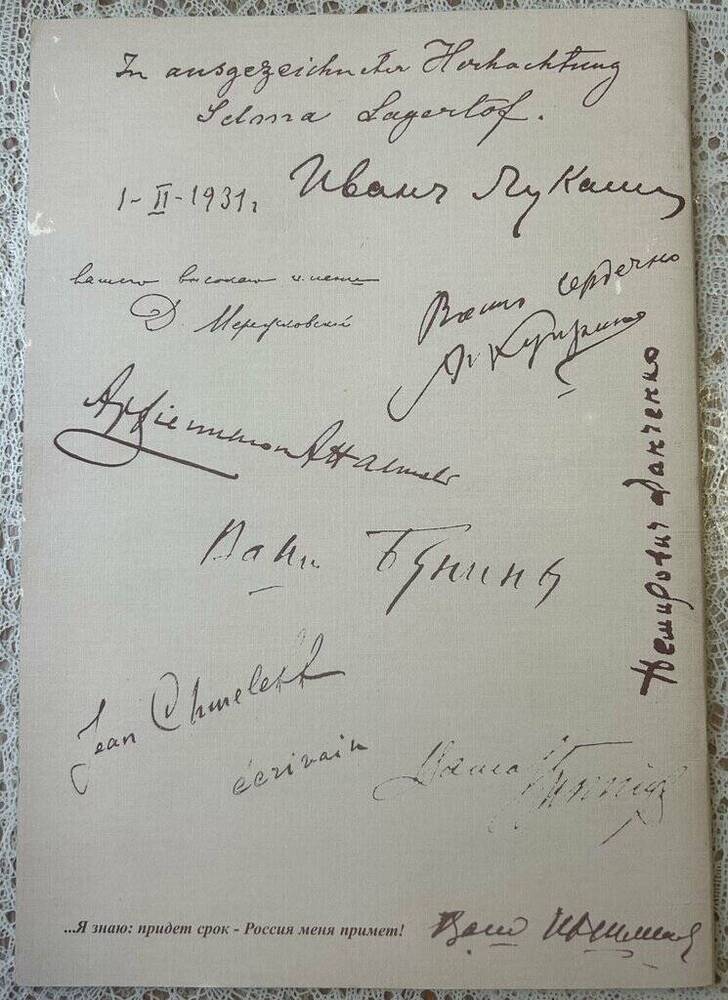 In ausgezeichneter Hochachtung
Selma Lagerlöf.
1-II-1931г
Иванъ Лукашъ
вашего высокаго
Д. Мережковскій
Вашъ сердечно
А. Купринъ
Немирович Данченко
Вашъ Бунинъ
Jean Chmeleff
écrivain
...Я знаю: придет срок - Россия меня примет!
Ваш Ив. Шмелев